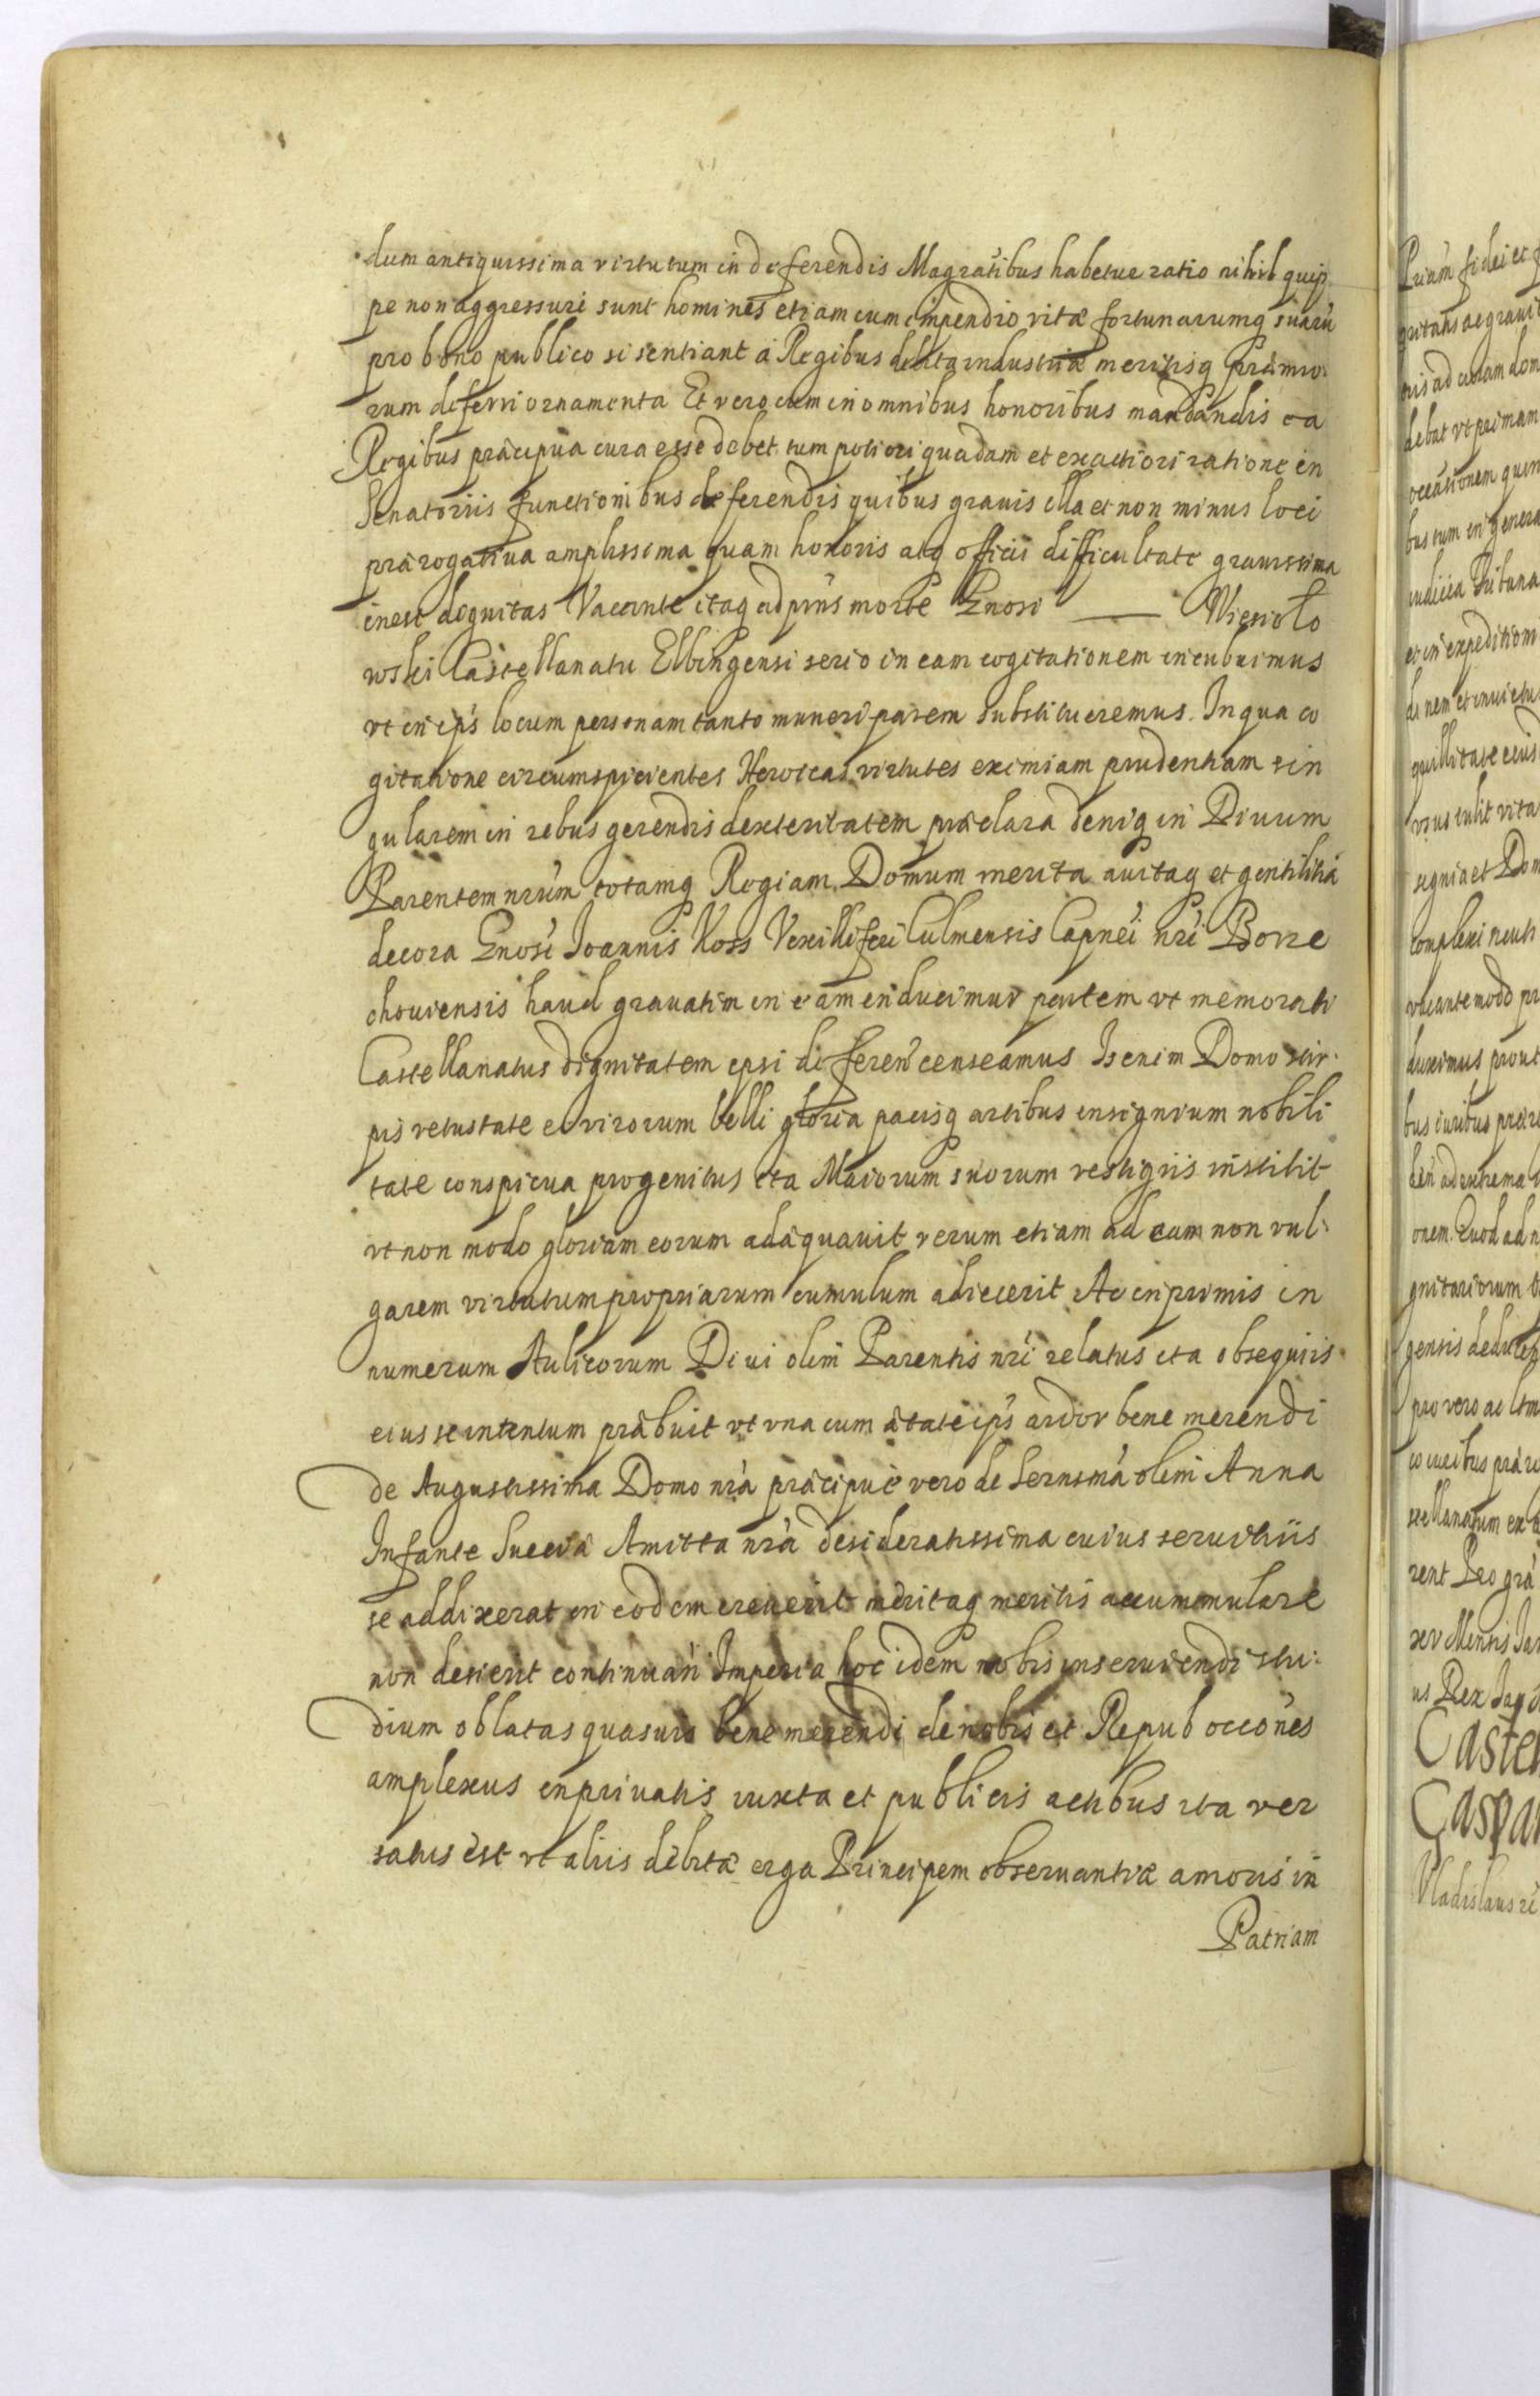 dum antiquissima virtutum in deferendis Magratibus habetur ratio nihil quip
pe non aggressuri sunt homines etiam cum impendio vitæ fortunarumq suarū
pro bono publico si sentiant á Regibus debita industriæ meritisq præmio
rum deferri ornamenta Et vero cum in omnibus honoribus mandandis ea
Regibus præcipua cura esse debet tum potiori quadam et exactiori ratione in
Senatoriis functionibus deferendis quibus grauis illa et non minus loci
prærogatiua amplissima quam honoris atq officii difficultate grauissima
inest dignitas Vacante itaq ad prns morte Gnosi — Wiesioło
wski Castellanatu Elbingensi serio in eam cogitationem incubuimus
vt in ips locum personam tanto muneri parem substitueremus. In qua co
gitatione circumspicientes Heroicas virtutes eximiam prudentiam sin
gularem in rebus gerendis dexteritatem præclara deniq in Diuum
Parentem nrum totamq Regiam Domum merita auitaq et gentilitia
decora Gnosi Joannis Koss Vexilliferi Culmensis Capnei nri Borze
chouiensis haud grauatim in eam inducimur partem vt memorati
Castellanatus dignitatem ipsi deferen censeamus Is enim Domo stir
pis vetustate et virorum belli gloria pacisq artibus insignium nobili
tate conspicua progenitus ita Maiorum suorum vestigiis institit
vt non modo gloriam eorum adæquauit verum etiam ad eam non vul
garem virtutum propriarum cumulum adiecerit Ac in primis in
numerum Aulicorum Diui olim Parentis nri relatus ita obsequiis
eius se intentum præbuit vt vna cum ætate ips ardor bene merendi
de Augustissima Domo nra præcipuè vero de Sernsma olim Anna
Infante Sueciæ Amitta nra desideratissima cuius seruitiis
se addixerat in eodem creuerit meritaq meritis accummulare
non desierit continuari Imperia hoc idem nobis inseruiendi stu
dium oblatas quasuis bene merendi de nobis et Repub occones
amplexus in priuatis iuxta et publicis actibus ita ver
satus est vt aliis debitæ erga Principem obseruantiæ amoris in
Patriam